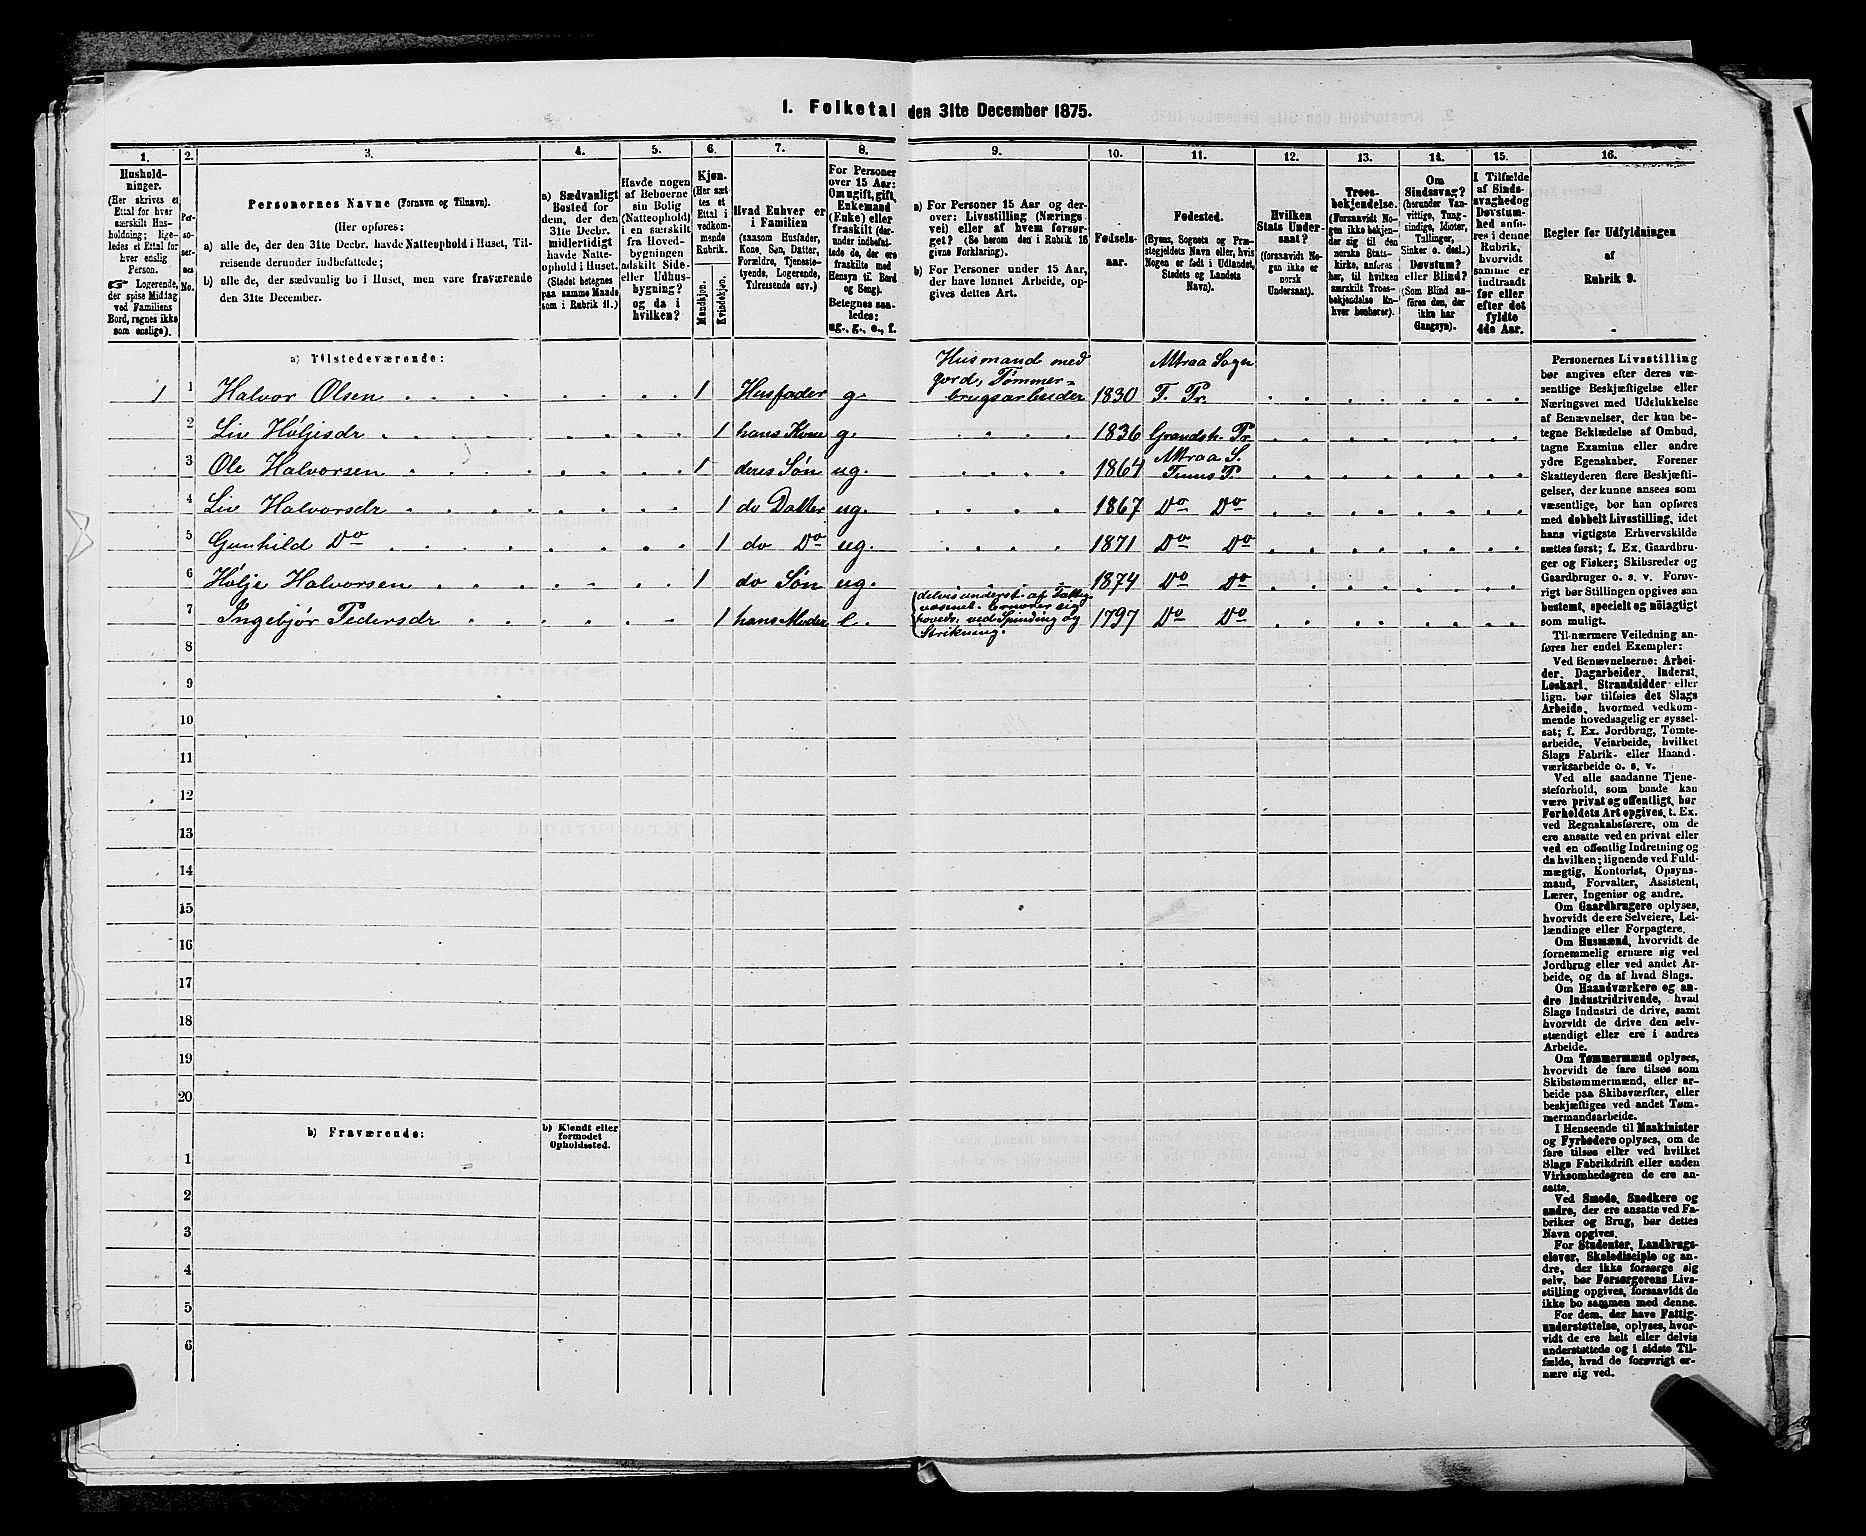 1. Folketal den 31te December 1875.
1. 2. 3. 4. 5. 6. 7. 8. 9. 10. 11. 12. 13. 14. 15. 16.
Hushold-
ninger.
(Her skrives et
Ettal for hver
særskilt Hus-
holdning; lige-
ledes et Ettal for
hver enslig
Person.
☞ Logerende,
der spise Middag
ved Familiens
Bord, regnes ikke
som enslige).
Per-
so-
ner-
nes
No.
Personernes Navne (Fornavn og Tilnavn).
(Her opføres:
a) alle de, der den 31te Decbr. havde Natteophold i Huset, Til-
reisende derunder indbefattede;
b) alle de, der sædvanlig bo i Huset, men vare fraværende
den 31te December.
a) Sædvanligt
Bosted for
dem, der den
31te Decbr.
midlertidigt
havde Natte-
ophold i Huset.
(Stedet betegnes
paa samme Maade
som i Rubrik 11.)
Havde nogen
af Beboerne
sin Bolig
(Natteophold)
i en særskilt
fra Hoved-
bygningen
adskilt Side-
eller Udhus-
bygning?
og da i
hvilken?
Kjøn.
(Her sæt-
tes et
Ettal i
vedkom-
mende
Rubrik.
Mandkjøn.
Kvindekjøn.
Hvad Enhver er
i Familien
(saasom Husfader,
Kone, Søn, Datter,
Forældre, Tjeneste-
tyende, Logerende,
Tilreisende osv.)
For Personer
over 15 Aar:
Om ugift, gift,
Enkemand
(Enke) eller
fraskilt (der-
under indbefat-
tede de, der ere
fraskilte med
Hensyn til Bord
og Seng).
Betegnes saa-
ledes:
ug., g., e., f.
a) For Personer 15 Aar og der-
over: Livsstilling (Nærings-
vei) eller af hvem forsør-
get? (Se herom den i Rubrik 16
givne Forklaring).
b) For Personer under 15 Aar,
der have lønnet Arbeide, op-
gives dettes Art.
Fødsels-
aar.
Fødested.
(Byens, Sognets og Præ-
stegjeldets Navn eller, hvis
Nogen er født i Udlandet,
Stedets og Landets
Navn).
Hvilken
Stats Under-
saat?
(forsaavidt No-
gen ikke er
norsk
Undersaat).
Troes-
bekjendelse.
(Forsaavidt No-
gen ikke bekjen-
der sig til den
norske Stats-
kirke, anføres
her, til hvilken
særskilt Troes-
bekjendelse En-
hver henhører).
Om
Sindssvag?
(herunder Van-
vittige, Tung-
sindige, Idioter,
Tullinger,
Sinker o. desl.)
Døvstum?
eller Blind?
(Som Blind an-
føres den, der
ikke har
Gangsyn).
I Tilfælde
af Sinds-
svaghed og
Døvstum-
hed anfø-
res i denne
Rubrik,
hvorvidt
samme er
indtraadt
før eller
efter det
fyldte
4de Aar.
Regler for Udfyldningen
af
Rubrik 9.
a) Tilstedeværende:
1 1 Halvor Olsen 1 Husfader g. Husmand med Jord, Tømmer= brugsarbeider 1830 Attraa Sogn T. Pr.
2 Liv Høljesdr 1 hans Kone g. 1836 Grandsh. Pr.
3 Ole Halvorsen 1 deres Søn ug. 1864 Attraa S. Tinns P.
4 Liv Halvorsdr 1 do Datter ug. 1867 Do Do
5 Gunhild Do 1 do Do ug. 1871 Do Do
6 Hølje Halvorsen 1 do Søn ug. 1874 Do Do
7 Ingebjør Pedersdr 1 hans Moder e. delvis underst. af Fattig væsenet. Ernærer sig hoveds. ved Spinding og Strikning. 1797 Do Do
8
9
10
11
12
13
14
15
16
17
18
19
20
b) Fraværende:
b) Kjendt eller
formodet
Opholdssted.
1
2
3
4
5
6
Personernes Livsstilling
bør angives efter deres væ-
sentlige Beskjæftigelse eller
Næringsvei med Udelukkelse
af Benævnelser, der kun be-
tegne Beklædelse af Ombud,
tagne Examina eller andre
ydre Egenskaber. Forener
Skatteyderen flere Beskjæfti-
gelser, der kunne ansees som
væsentlige, bør han opføres
med dobbelt Livsstilling, idet
hans vigtigste Erhvervskilde
sættes først; f. Ex. Gaardbru-
ger og Fisker; Skibsreder og
Gaardbruger o. s. v. Forøv-
rigt bør Stillingen opgives saa
bestemt, specielt og nøiagtigt
som muligt.
Til nærmere Veiledning an-
føres her endel Exempler:
Ved Benævnelserne: Arbei-
der, Dagarbeider, Inderst,
Løskarl, Strandsidder eller
lign. bør tilføies det Slags
Arbeide, hvormed vedkom-
mende hovedsagelig er syssel-
sat; f. Ex. Jordbrug, Tomte-
arbeide, Veiarbeide, hvilket
Slags Fabrik- eller Haand-
værksarbeide o. s. v.
Ved alle saadanne Tjene-
steforhold, som baade kan
være privat og offentligt, bør
Forholdets Art opgives, t. Ex.
ved Regnskabsførere, om de
ere ansatte ved en privat eller
ved en offentlig Indretning og
da hvilken; lignende ved Fuld-
mægtig, Kontorist, Opsyns-
mand, Forvalter, Assistent,
Lærer, Ingeniør og andre.
Om Gaardbrugere oplyses,
hvorvidt de ere Selveiere, Lei-
lændinge eller Forpagtere.
Om Husmænd, hvorvidt de
fornemmelig ernære sig ved
Jordbrug eller ved andet Ar-
beide, og da af hvad Slags.
Om Haandværkere og an-
dre Industridrivende, hvad
Slags Industri de drive, samt
hvorvidt de drive den selv-
stændigt eller ere i andres
Arbeide.
Om Tømmermænd oplyses,
hvorvidt de fare tilsøs som
Skibstømmermænd, eller ar-
beide paa Skibsværfter, eller
beskjæftiges ved andet Tøm-
mermandsarbeide.
I Henseende til Maskinister
og Fyrbødere oplyses, om de
fare tilsøs eller ved hvilket
Slags Fabrikdrift eller anden
Virksomhedsgren de ere an-
satte.
Ved Smede, Snedkere og
andre, der ere ansatte ved Fa-
briker og Brug, bør dettes
Navn opgives.
For Studenter, Landbrugs-
elever, Skoledisciple og an-
dre, der ikke forsørge sig
selv, bør Forsørgerens Livs-
stilling opgives, forsaavidt de
ikke bo sammen med denne.
For dem, der have Fattig-
understøttelse, oplyses, hvor-
vidt de ere helt eller delvis
understøttede og i sidste Til-
fælde, hvad de forøvrigt er-
nære sig ved.